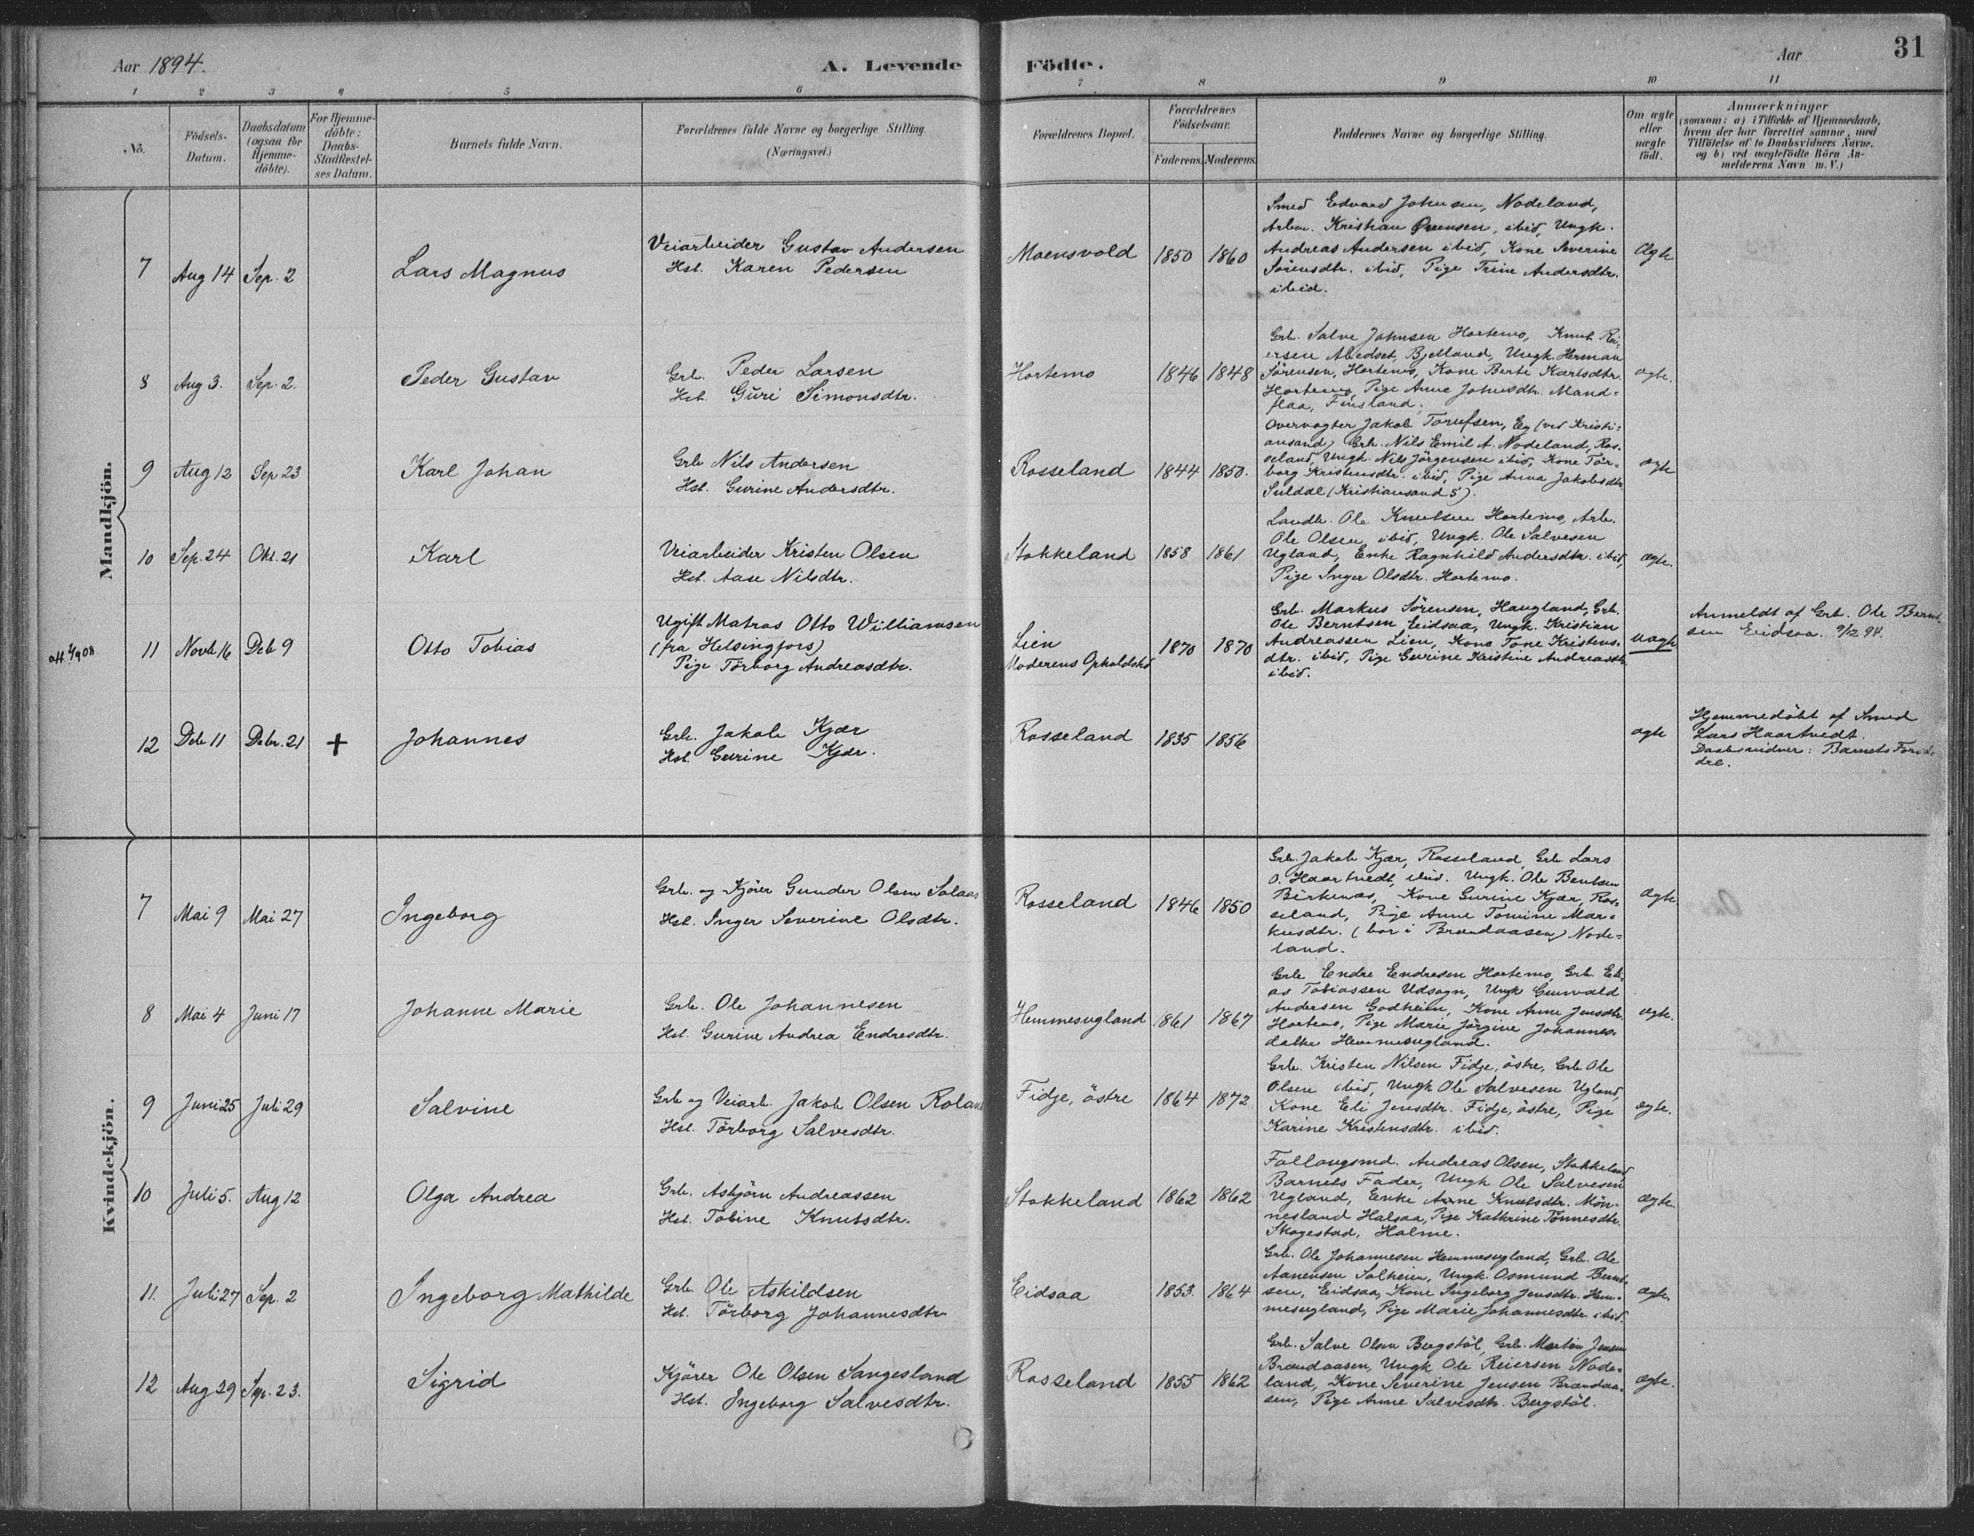 Aar 1894.
A. Levende Födte.
Aar
31
1 2 3 4 5 6 7 8 9 10 11
No.
Födsels-
Datum.
Daabsdatum
(ogsaa for
Hjemme-
döbte).
For Hjemme-
döbte:
Daabs-
Stadfæstel-
ses Datum.
Barnets fulde Navn.
Forældrenes fulde Navne og borgerlige Stilling.
(Næringsvei.)
Forældrenes Bopæl.
Forældrenes
Födselsaar.
Faderens. Moderens.
Faddernes Navne og borgerlige Stilling.
Om ægte
eller
uægte
født.
Anmærkninger
(saasom: a) i Tilfælde af Hjemmedaab,
hvem der har forrettet samme, med
Tilföielse af to Daabsvidners Navne.
og b) ved uægtefödte Börn An-
melderens Navn m. V.)
Mandkjön.
7 Aug 14 Sep. 2
Lars Magnus
Veiarbeider Gustav Andersen
Hst. Karen Pedersen
Moensvold 1850 1860
Smed Edvard Johnsen, Nodeland,
Arbm. Kristian Ovensen, ibid, Ungk.
Andreas Andersen ibid, Kone Severine
Sörensdtr. ibid, Pige Trine Andersdtr.
ibid.
Ægte
8 Aug 3. Sep. 2.
Peder Gustav
Grb. Peder Larsen
Hst. Guri Simonsdtr.
Hortemo 1846 1848
Grb. Salve Johnsen Hortemo, Knut Rei-
ersen Abedset, Bjelland, Ungk. Herman
Sörensen, Hortemo, Kone Berte Karlsdtr.
Hortemo, Pige Anne Johnsdtr. Mand-
flaa, Finsland.
ægte.
9 Aug 12 Sep 23
Karl Johan
Grb Nils Andersen
Hst. Gurine Andersdtr.
Rosseland 1844 1850.
Overvogter Jakob Torufsen, Eg (ved Kristi-
ansand) Grb. Nils Emil A. Nodeland, Ros-
seland, Ungk. Nils Jörgensen ibid, Kone Tör-
borg Kristensdtr. ibid, Pige Anna Jakobsdtr
Suldal (Kristiansand S).
ægte
10 Sep. 24 Okt. 21
Karl
Veiarbeider Kristen Olsen
Hst. Aase Nilsdtr.
Stokkeland 1858 1861
Landh. Ole Knutsen Hortemo, Arb.
Ole Olsen, ibid, Ungk. Ole Salvesen
Ugland, Enke Ragnhild Andersdtr. ibid,
Pige Inger Olsdtr. Hortemo.
ægte.
11 Novb 16 Deb 9
Otto Tobias
Ugift Matros Otto Williamsen
(fra Helsingfors)
Pige Törborg Andreasdtr.
Lien
Moderens Opholdsted
1870 1870
Grb. Markus Sörensen, Haugland, Grb.
Ole Berntsen Eidsaa, Ungk. Kristien
Andreassen Lien, Kone Tone Kristens-
dtr. ibid, Pige Gurine Kristine Andreasdtr
ibid.
uægte
Anmeldt af Grb. Ole Bernt-
sen Eidsaa. 9/12 94.
12 Deb 11 Debr. 21 +
Johannes
Grb. Jakob Kjær
Hst. Gurine Kjær.
Rosseland 1835 1856
ægte
Hjemmedöbt af Smed
Lars Haartvedt.
Daabsvidner: Barnets Foræl-
dre.
Kvindekjön.
7 Mai 9 Mai 27
Ingeborg
Grb. og Kjörer Gunder Olsen Solaas
Hst. Inger Severine Olsdtr.
Rosseland 1846 1850
Grb. Jakob Kjær, Rosseland, Grb Lars
O. Haartvedt, ibid. Ungk. Ole Bentsen
Birkenæs, Kone Gurine Kjær, Ros-
seland, Pige Anne Tomine Mar-
kusdtr. (bor i Brændaasen) Node-
land.
Ægte
8 Mai 4 Juni 17
Johanne Marie
Grb. Ole Johannesen
Hst. Gurine Andrea Endresdtr.
Hemmesugland 1861 1867
Grb Endre Endresen Hortemo, Grb. Eli-
as Tobiassen Udsogn, Ungk Gunvald
Andersen Godheim, Kone Anne Jensdtr.
Hortemo, Pige Marie Jörgine Johannes-
datter Hemmesugland.
ægte.
9 Juni 25 Juli 29
Salvine
Grb og Veiarb. Jakob Olsen Roland
Hst. Törborg Salvesdtr.
Fidje, östre 1864 1872
Grb. Kristen Nilsen Fidje, östre, Grb Ole
Olsen ibid, Ungk Ole Salvesen Ugland,
Kone Eli Jensdtr. Fidje, östre, Pige
Karine Kristensdtr. ibid.
ægte.
10 Juli 5. Aug 12
Olga Andrea
Grb. Asbjörn Andreassen
Hst. Tobine Knutsdtr.
Stokkeland 1862 1862
Follaugsmd. Andreas Olsen, Stokkeland
Barnets Fader, Ungk Ole Salvesen
Ugland, Enke Anne Knutsdtr. Møn-
nesland Halsaa, Pige Kathrine Tönnesdtr.
Skogestad, Holme.
ægte.
11. Juli 27 Sep. 2
Ingeborg Mathilde
Grb. Ole Askildsen
Hst. Törborg Johannesdtr
Eidsaa 1853 1864
Grb. Ole Johannesen Hemmesugland, Grb. Ole
Aanensen Solheien, Ungk. Osmund Bernt-
sen, Eidsaa, Kone Ingeborg Jensdtr. Hem-
mesugland, Pige Marie Johannesdtr. ibid.
ægte.
12 Aug 29 Sep. 23.
Sigrid
Kjörer Ole Olsen Sangesland
Hst. Ingeborg Salvesdtr.
Rosseland 1855 1862
Grb. Salve Olsen Bergstöl, Grb. Martin Jensen
Brændaasen, Ungk Ole Reiersen Node-
land, Kone Severine Jensen Brændaa-
sen, Pige Anne Salvesdtr. Bergstöl.
ægte.